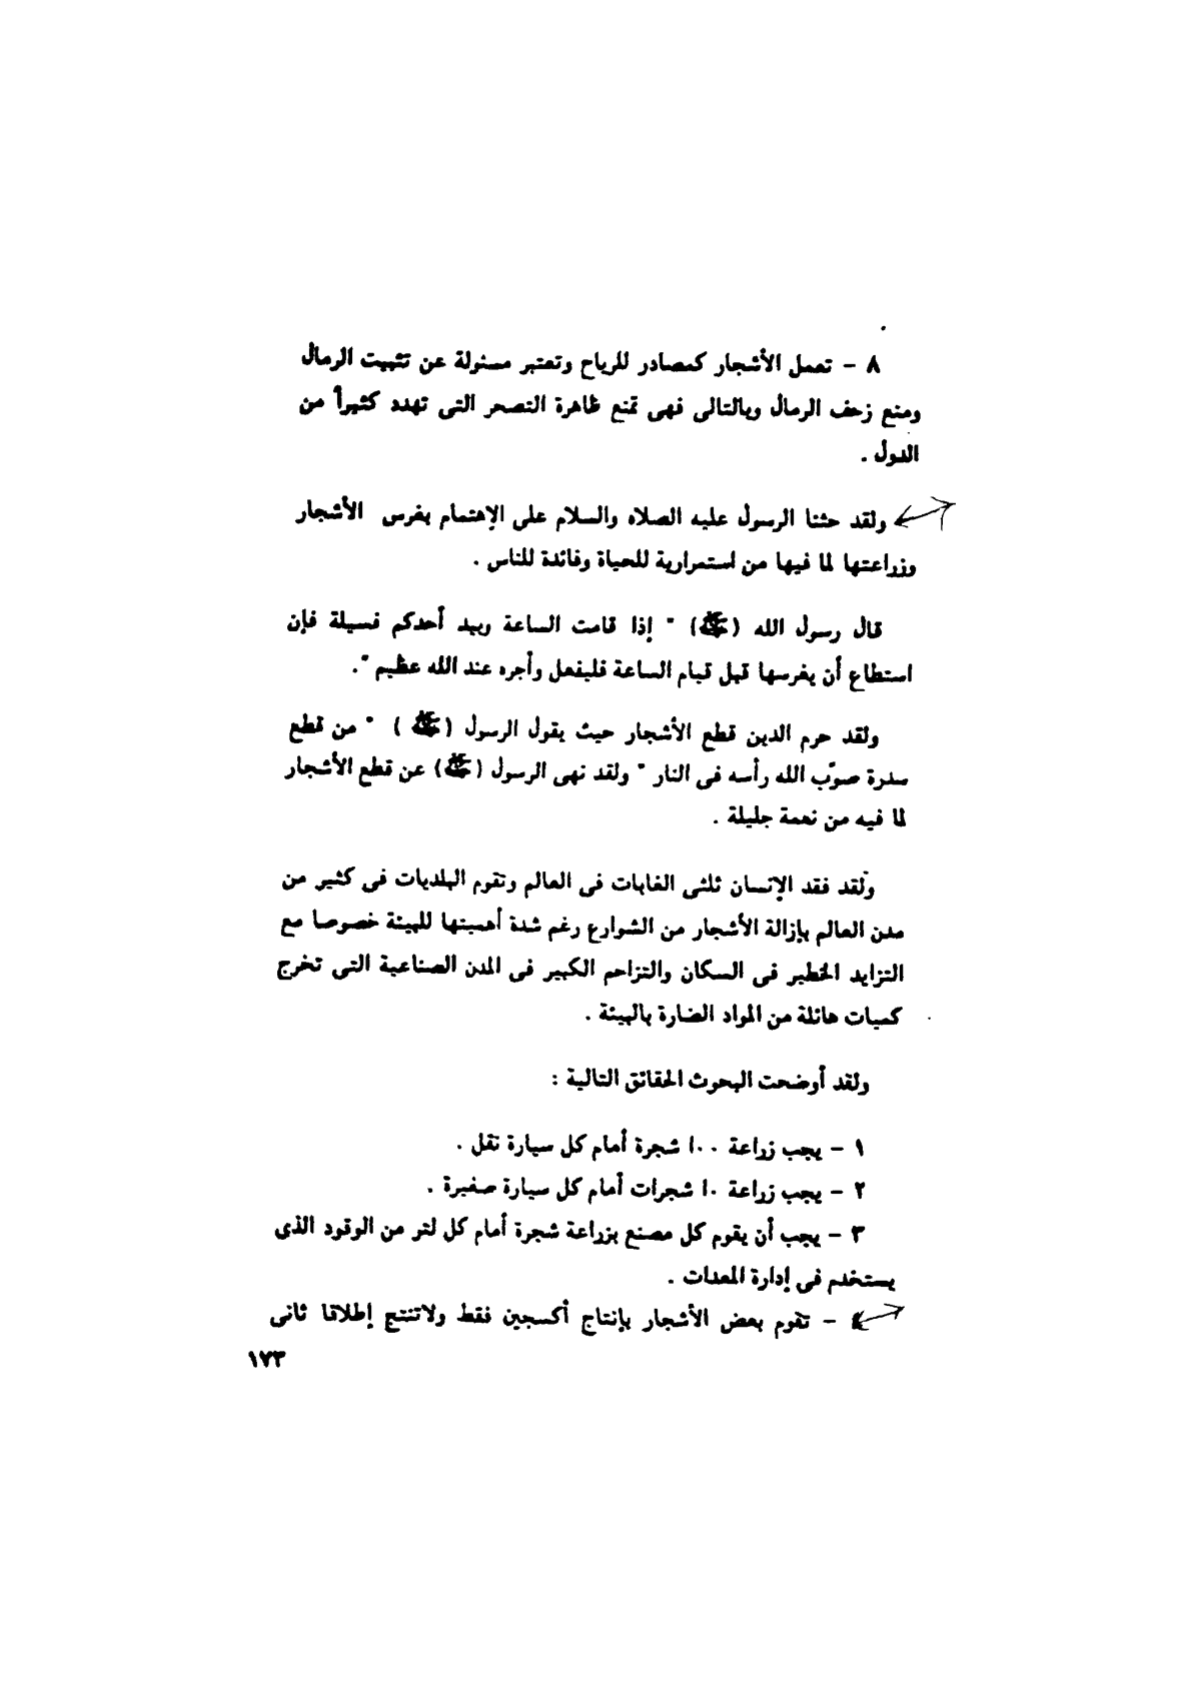 ٨ - تعمل الأشجار كمصادر للرياح وتعتبر مسئولة عن تثبيت الرمال
ومنع زحف الرمال وبالتالى فهى تمنع ظاهرة التصحر التى تهدد كثيراً من
الدول .
ولقد حثنا الرسول عليه الصلاه والسلام على الإهتمام بغرس الأشجار
وزراعتها لما فيها من استمرارية للحياة وفائدة للناس .
قال رسول الله (ﷺ) " إذا قامت الساعة وبيد أحدكم فسيلة فإن
استطاع أن يغرسها قبل قيام الساعة فليفعل وأجره عند الله عظيم ".
ولقد حرم الدين قطع الأشجار حيث يقول الرسول (ﷺ ) " من قطع
سدرة صوّب الله رأسه فى النار " ولقد نهى الرسول (ﷺ) عن قطع الأشجار
لما فيه من نعمة جليلة .
ولقد فقد الإنسان ثلثى الغابات فى العالم وتقوم البلديات فى كثير من
مدن العالم بإزالة الأشجار من الشوارع رغم شدة أهميتها للبيئة خصوصا مع
التزايد الخطير فى السكان والتزاحم الكبير فى المدن الصناعية التى تخرج
كميات هائلة من المواد الضارة بالبيئة .
ولقد أوضحت البحوث الحقائق التالية :
١ - يجب زراعة ١٠٠ شجرة أمام كل سيارة نقل .
٢ - يجب زراعة ١٠ شجرات أمام كل سيارة صغيرة .
٣ - يجب أن يقوم كل مصنع بزراعة شجرة أمام كل لتر من الوقود الذى
يستخدم فى إدارة المعدات .
٤ - تقوم بعض الأشجار بإنتاج أكسجين فقط ولاتنتج إطلاقا ثانى
١٧٣